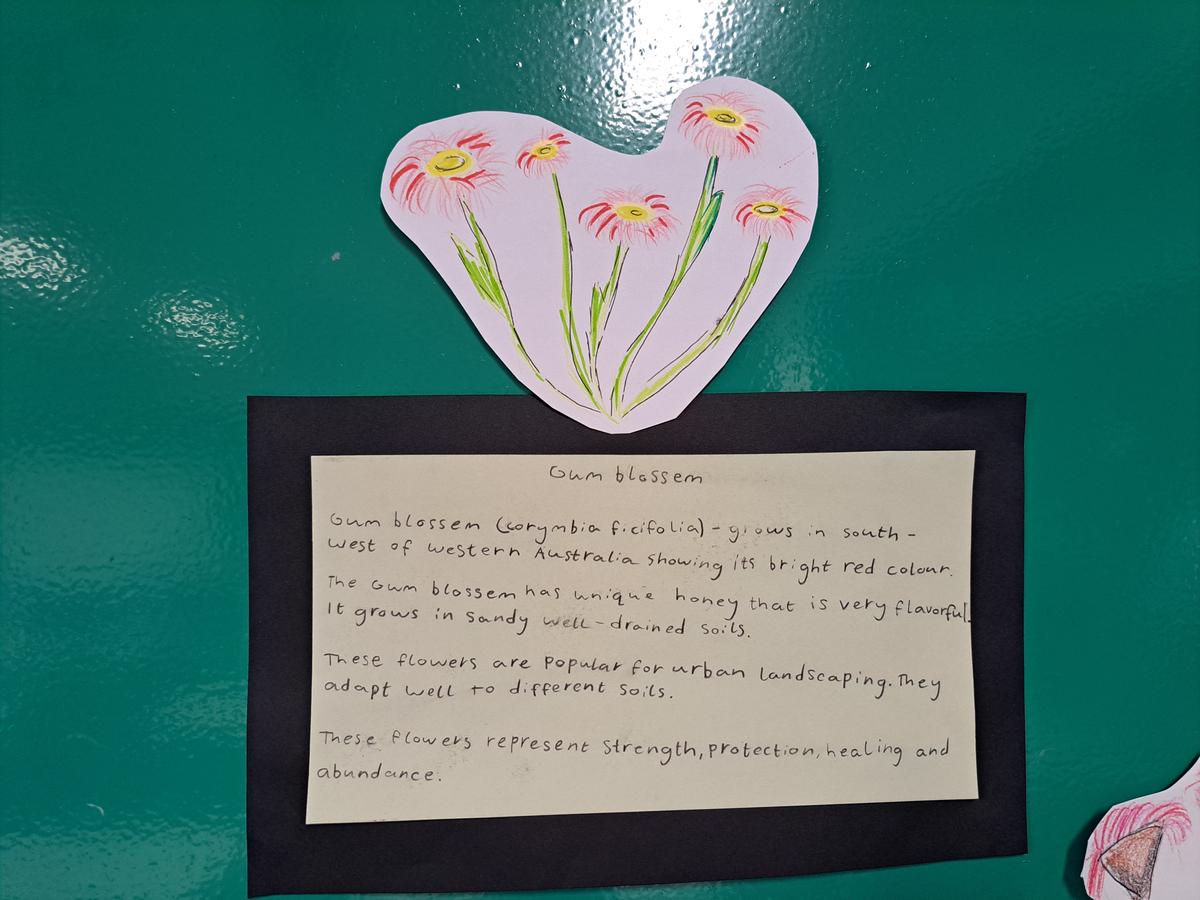 Gum blossem
Gum blossem (corymbia ficifolia) - grows in south -
west of western Australia showing its bright red colour.
The Gum blossem has unique honey that is very flavorful.
It grows in sandy well-drained soils.
These flowers are popular for urban landscaping. They
adapt well to different soils.
These flowers represent strength, protection, healing and
abundance.